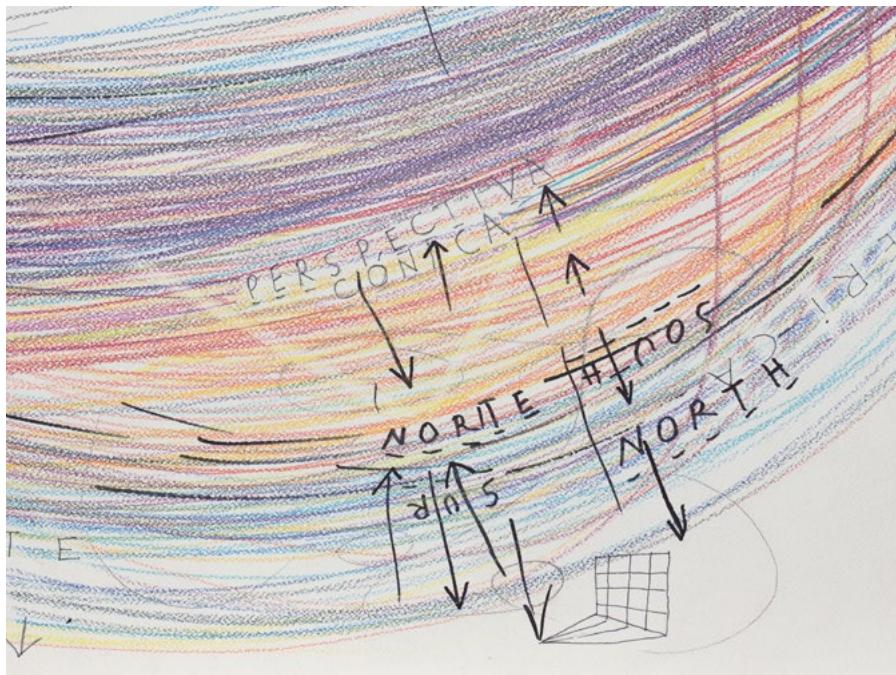 PERSPECTIVA
CONICA
SOUTH
RiCA
NORTE
NORTH
SUR
TE